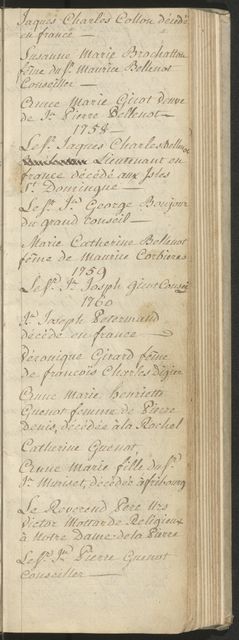 Jaques Charles Collon décédé
en france —
Susanne Marie Brochatton
feme du Sr. Maurice Bellenot
Conseiller —
Anne Marie Girot
de Jn. Pierre Bellenot —
1758 —
Le Sr. Jaques Charles Bellenot
Lieutenant en
france décédé aux Isles
St. Domingue —
Le Sr. Jn. George Boujour
du grand Conseil —
Marie Catherine Bellenot
feme de Maurice Corbiere
1759
Le Sr. Jn. Joseph Girot Conseil
1760
Jn. Joseph Petermand
décédé en france —
Veronique Girard feme
de francois Charles Digier
Anne Marie henriette
Guenot femme de Pierre
Denis, décédée à la Rochel
Catherine Guenot,
Anne Marie fille du Sr.
Jn. Muriset, décédée à fribourg
Le Reverend Pere Urs
Victor Mottarde Religieux
à Notre Dame de la Pierre
Le Sr. Jn. Pierre Guenot
Conseiller —